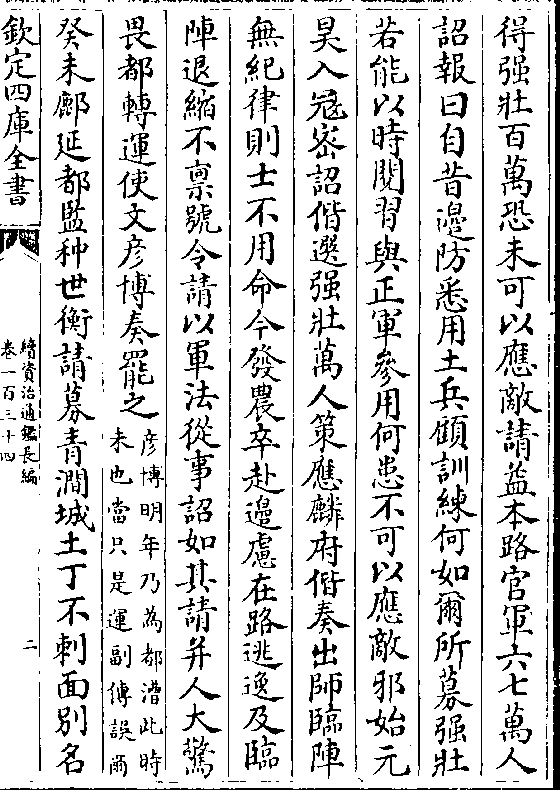 得强壯百萬恐未可以應敵請益本路官軍六七萬人
詔報曰自昔邊防悉用土兵顧訓練何如爾所募强壯
若能以時閱習與正軍參用何患不可以應敵邪始元
昊入冦宻詔偕選强壯萬人策應麟府偕奏出師臨陣
無紀律則士不用命今發農卒赴邊慮在路逃逸及臨
陣退縮不禀號令請以軍法從事詔如其請并人大驚
畏都轉運使文彦博奏罷之
彦博明年乃為都漕此時
未也當只是運副傳誤爾
癸未鄜延都監种世衡請募青澗城土丁不刺面别名
欽定四庫全書
續資治通鑑長編
卷一百三十四
二